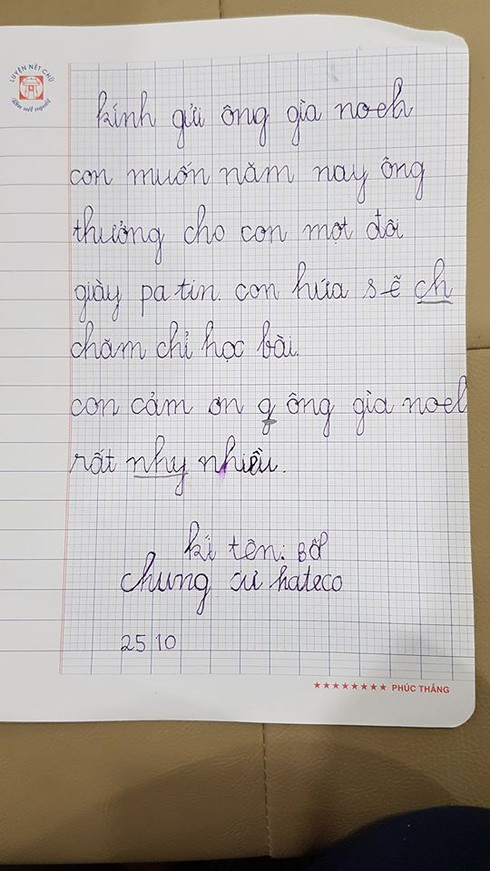 LUYỆN NÉT CHỮ
Rèn nết người
kính gửi ông gìa noel
con muốn năm nay ông
thưởng cho con một đôi
giày pa tin. con hứa sẽ ch
chăm chỉ học bài.
con cảm ơn g ông gìa noel
rất nhy nhiều.
kí tên: BỐP
chung cư hateco
25 10
★★★★★★★★ PHÚC THẮNG